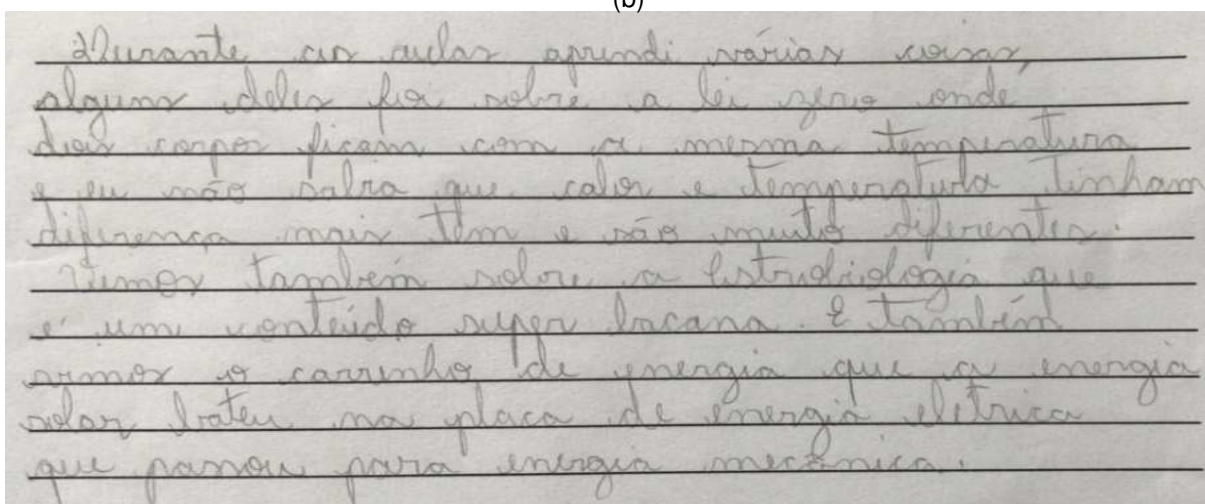 (b)
Durante as aulas aprendi várias coisas,
alguns deles foi sobre a lei zero onde
dois corpos ficam com a mesma temperatura
e eu não sabia que calor e temperatura tinham
diferença mais têm e são muito diferentes.
Vimos também sobre a que
é um conteúdo super bacana. E também
vimos o carrinho de energia que a energia
solar bateu na placa de energia eletrica
que passou para energia mecânica.